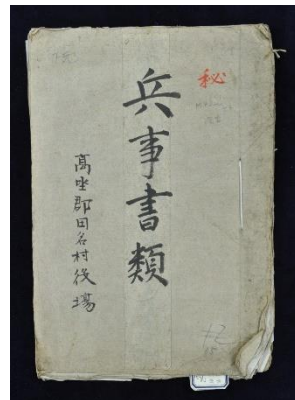 秘
兵事書類
高座郡田名村役場